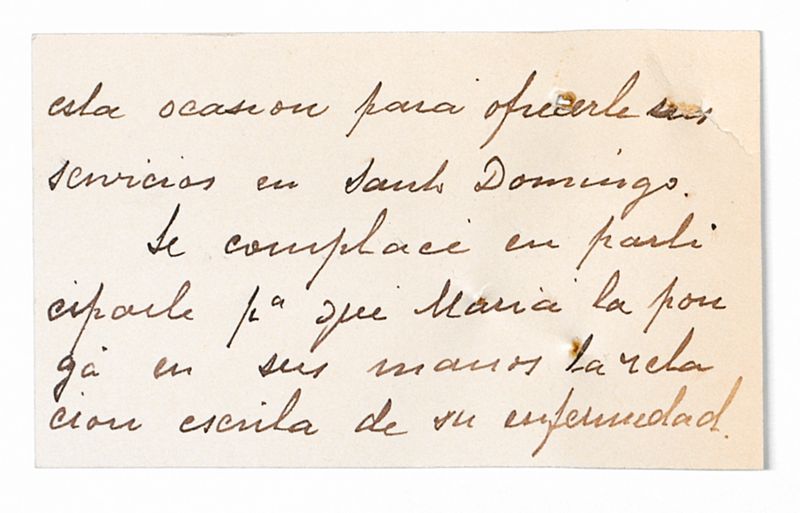 esta ocasion para ofrecerle sus
servicios en Santo Domingo.
Se complace en parti
ciparle pª que Maria la pon
ga en sus manos la rela
cion escrita de su enfermedad.